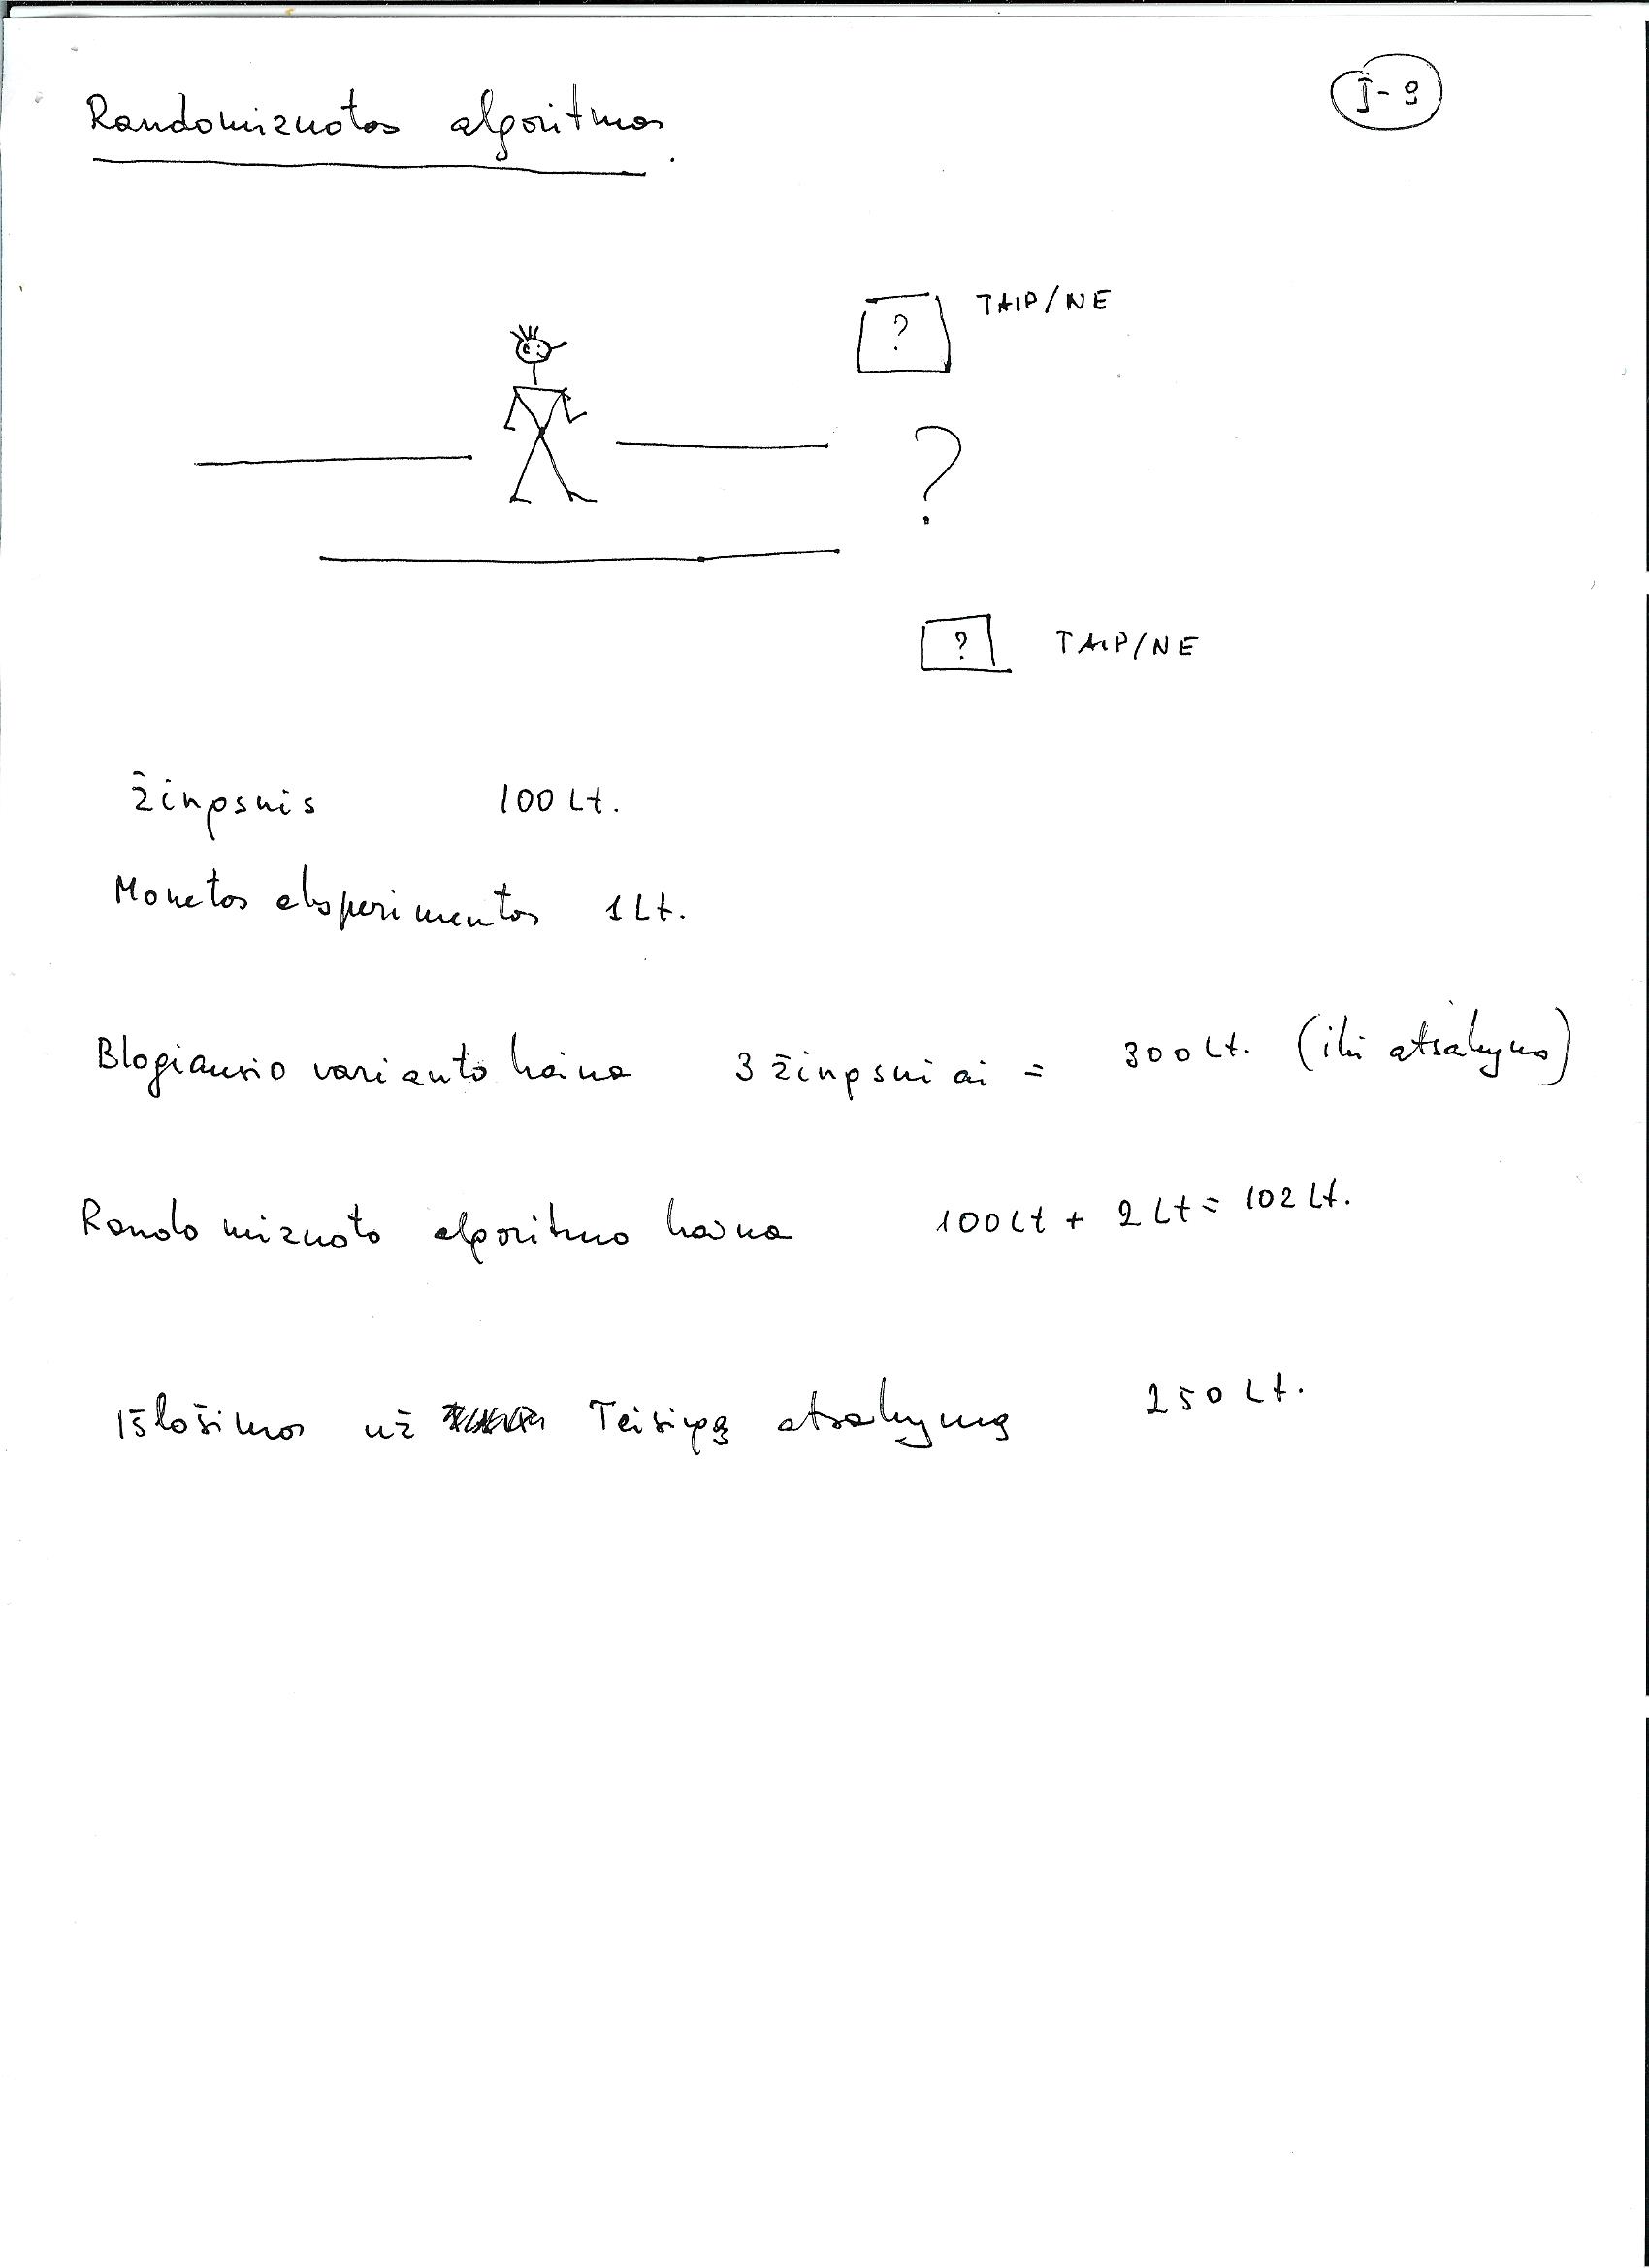 I-9
Randomizuotas algoritmas.
? TAIP/NE
?
? TAIP/NE
žingsnis 100 Lt.
Monetos eksperimentas 1 Lt.
Blogiausio varianto kaina 3 žingsniai = 300 Lt. (iki atsakymo)
Randomizuoto algoritmo kaina 100 Lt + 2 Lt = 102 Lt.
Išlošimas už Teisingą atsakymą 250 Lt.